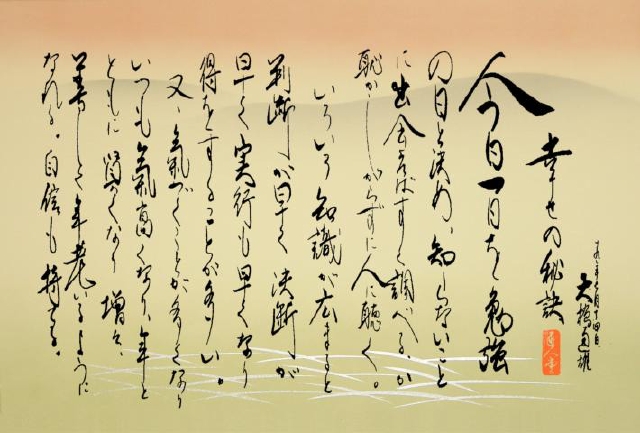 幸せの秘訣
今日一日を勉強
の日と決め、知らないこと
に出会えばすぐ調べる。か
恥かしがらずに人に聴く。
いろいろ知識が広まると
判断が早く決断が
早く実行も早くなり
得をすることが多い。
又、氣づくことが多くなり
いつも氣高くなり、年と
ともに賢くなり増々、
美しく年老いるように
なれる。自信も持てる。
月十四日
大橋